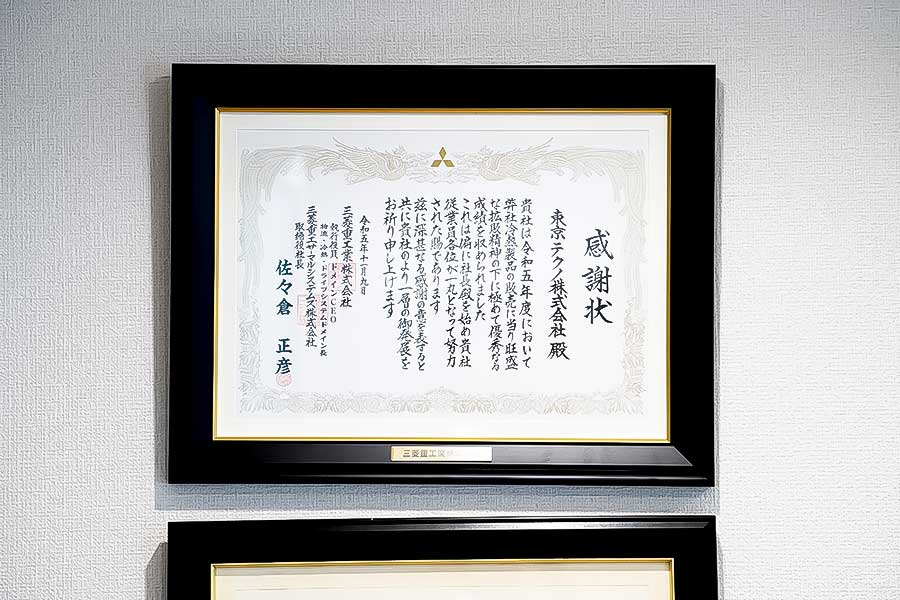 感謝状
東京テクノ株式会社 殿
貴社は令和五年度において
弊社冷熱製品の販売に当り旺盛
な拡販精神の下に極めて優秀なる
成績を収められました
これは偏に社長殿を始め貴社
従業員各位が一丸となって努力
された賜であります
茲に深甚なる感謝の意を表すると
共に貴社のより一層の御発展を
お祈り申し上げます
令和五年十一月九日
三菱重工業株式会社
執行役員 ドメインCEO
物流・冷熱・ドライブシステムドメイン長
三菱重工サーマルシステムズ株式会社
取締役社長
佐々倉 正彦
三菱重工業